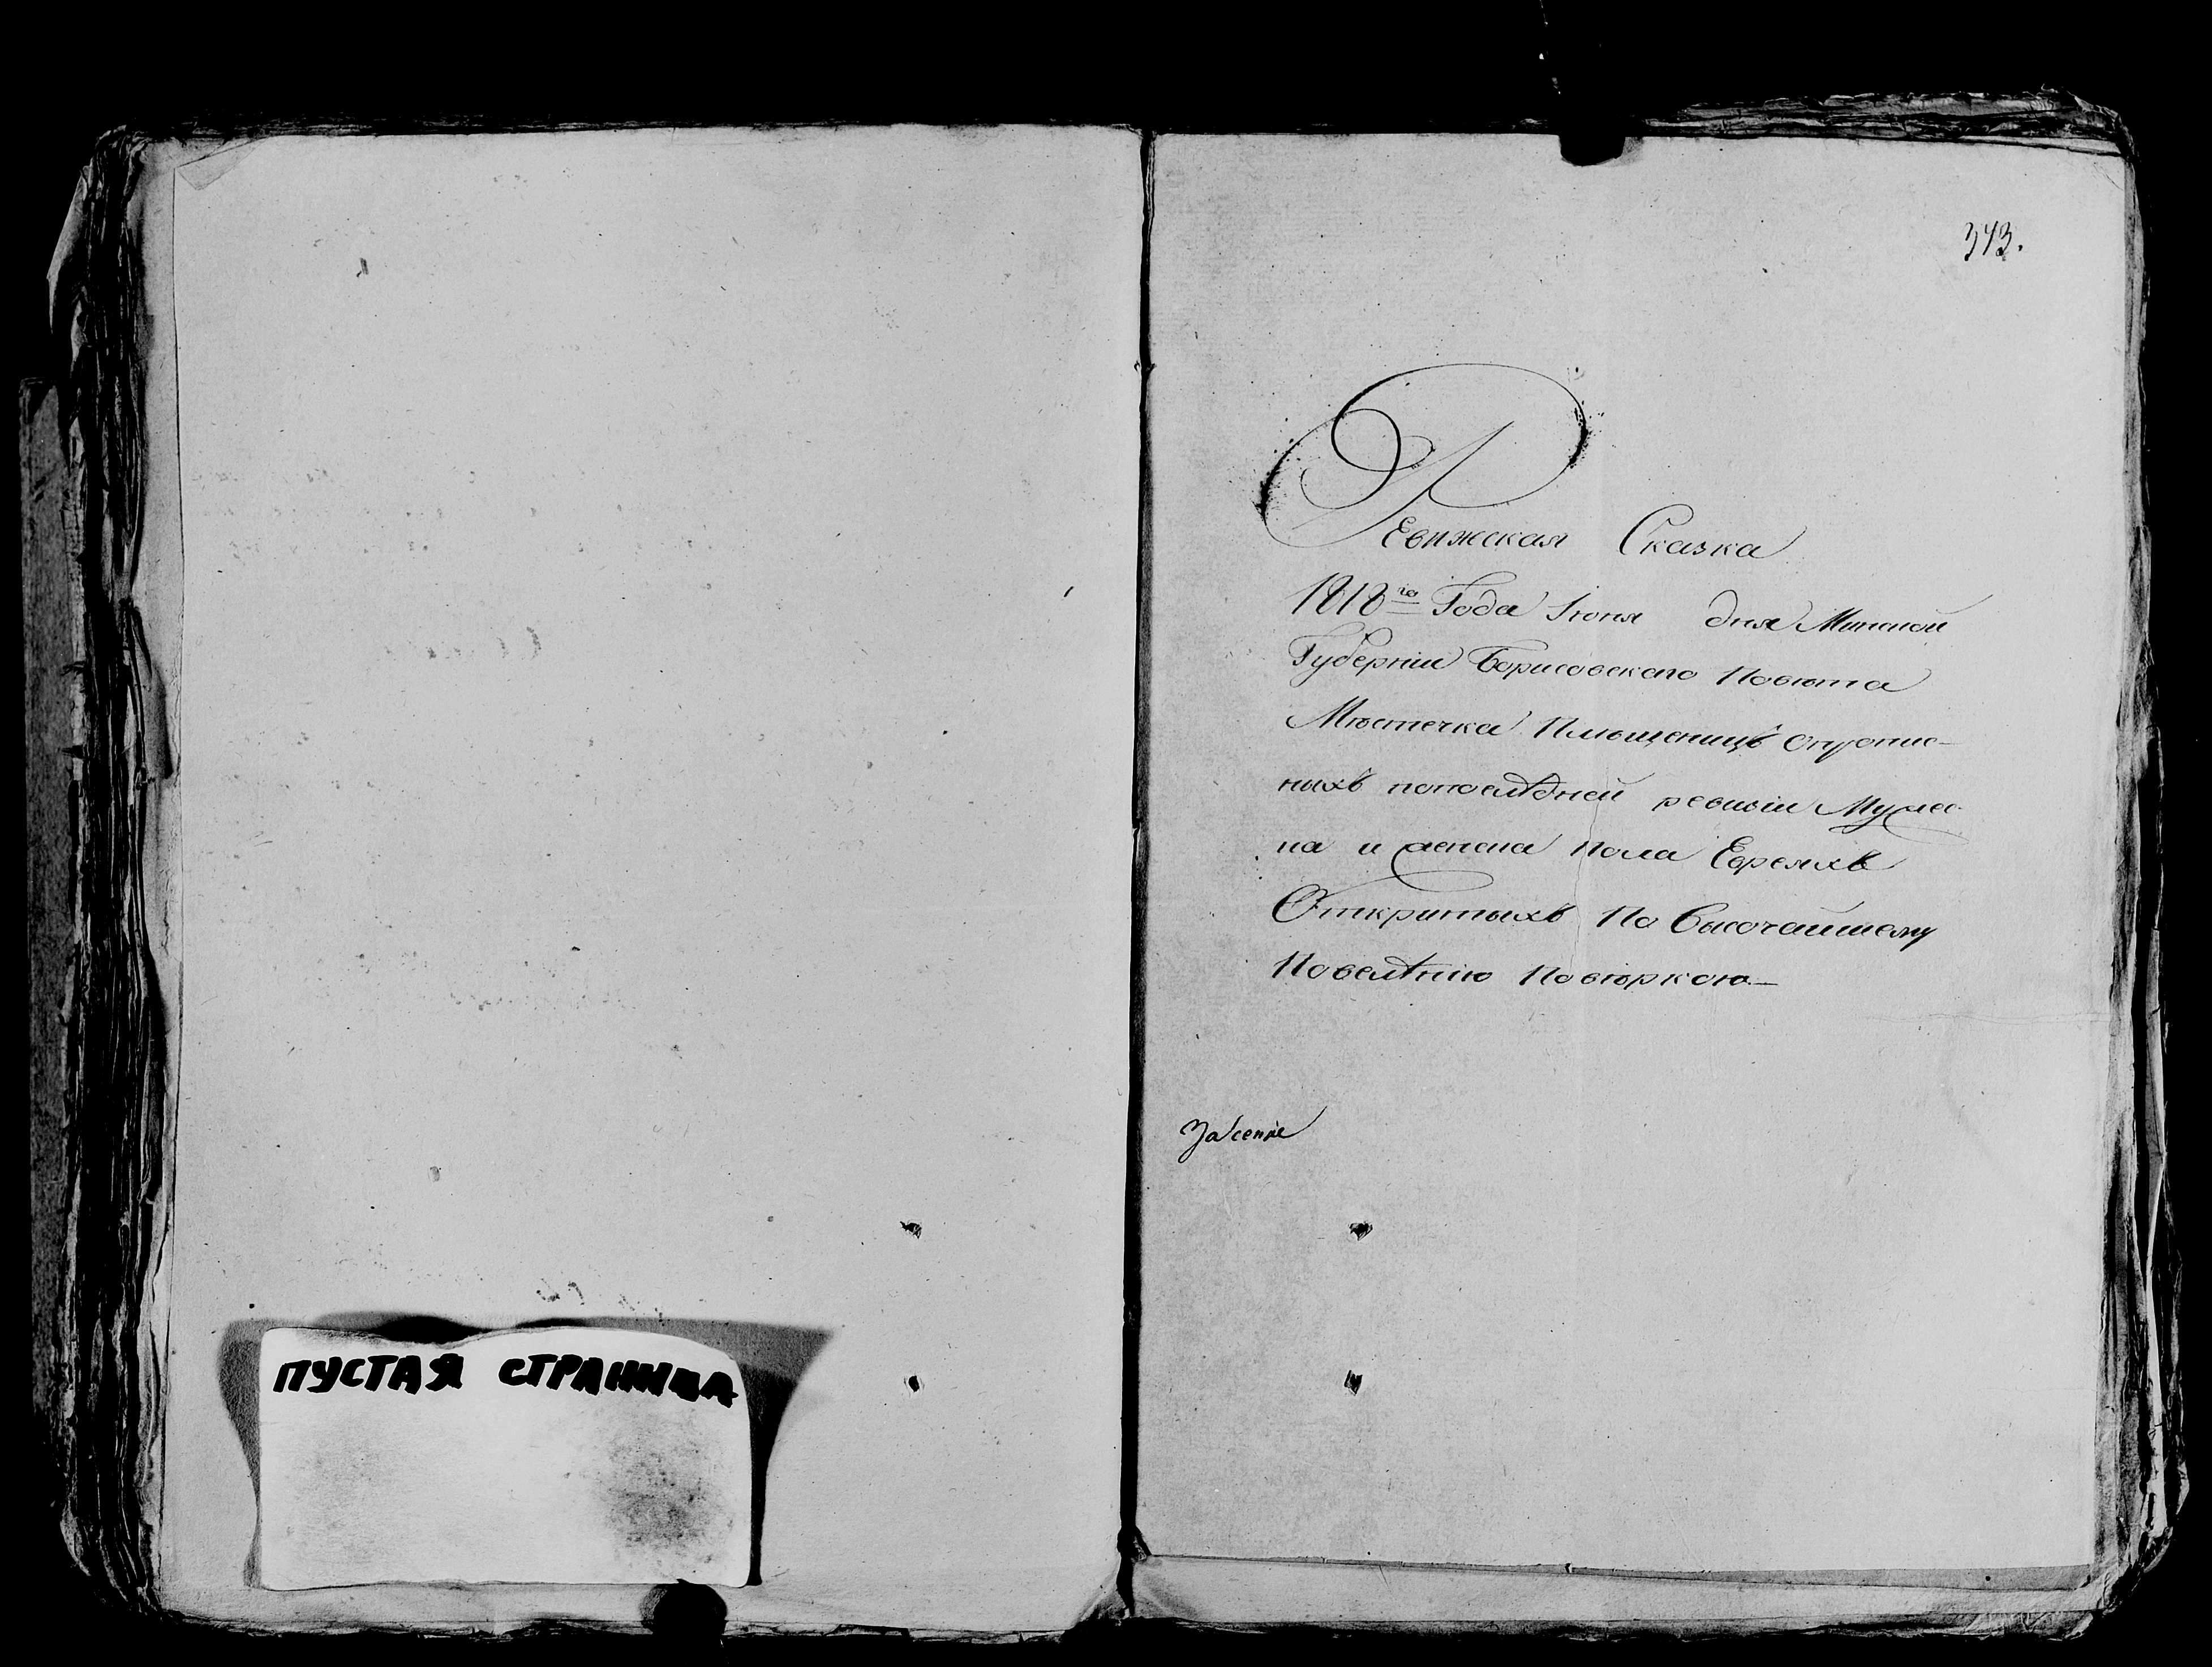 ПУСТАЯ СТРАНИЦА
343.
Ревижская Сказка
1818го Года Июня дня Минской
Губерніи Борисовского Повѣта
Мѣстечка Плещеницъ
ныхъ попослѣдней ревизіи Мужес-
ка и женска пола Евреяхъ
Открытыхъ По Высочайшему
Повелѣнію Повѣркою